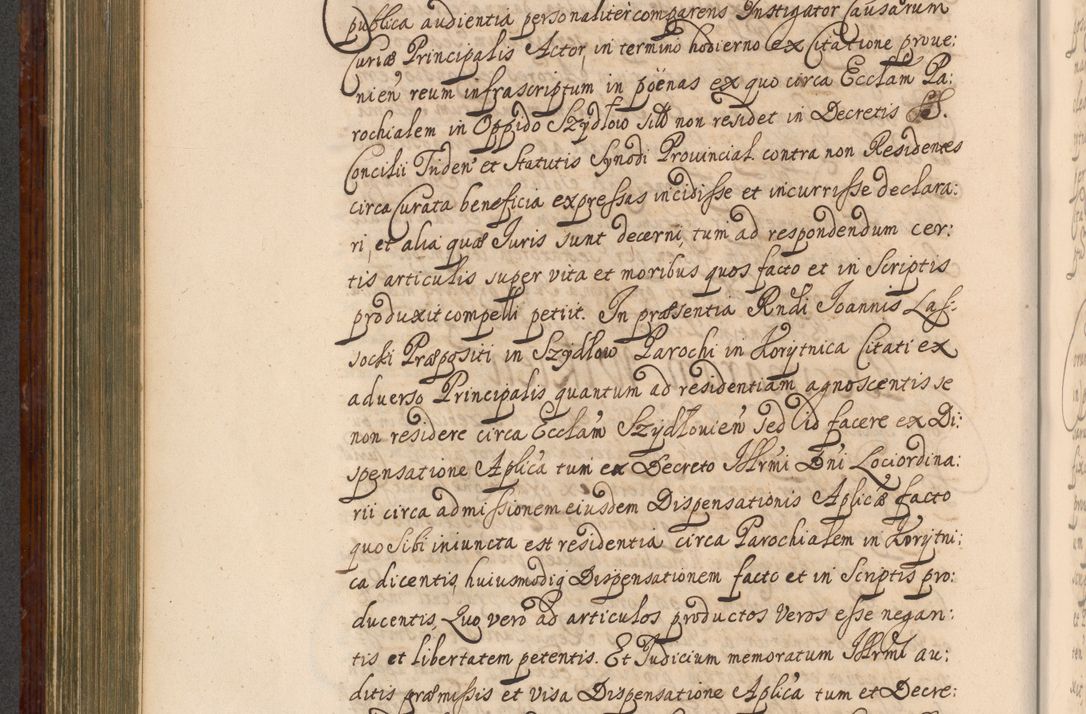 publica audientia personaliter comparens Instigator Causarum
Curiæ Principalis Actor, in termino hodierno ex Citatione prove:
nien̄ reum infrascriptum in pöenas ex quo circa Ecclām Pa:
rochialem in Oppido Szydłow sitt̄ non residet in Decretis SS.
Concilii Triden̄ et Statutis Synodi Provincial. contra non Residentes
circa Curata beneficia expressas incidisse et incurrisse declara:
ri, et alia quæ Iuris sunt decerni, tum ad respondendum cer:
tis articulis super vita et moribus quos facto et in Scriptis
produxit compelli petiit. In præsentia Rndi Ioannis Las:
socki Præpositi in Szydłow Parochi in Korytnica Citati ex
adverso Principalis quantum ad residentiam agnoscentis se
non residere circa Ecclām Szydłovien̄ sed id facere ex Di:
spensatione Aplica tum ex Decreto Illrmi Dni Lociordina:
rii circa admissionem eiusdem Dispensationis Aplicæ facto
quo sibi iniuncta est residentia circa Parochialem in Korytni:
ca dicentis, huiusmodiq Dispensationem facto et in Scriptis pro:
ducentis, Quo vero ad articulos productos Veros esse negan:
tis et libertatem petentis. Et Iudicium memoratum Illrmi au:
ditis præmissis et visa Dispensatione Aplica tum et Decre: